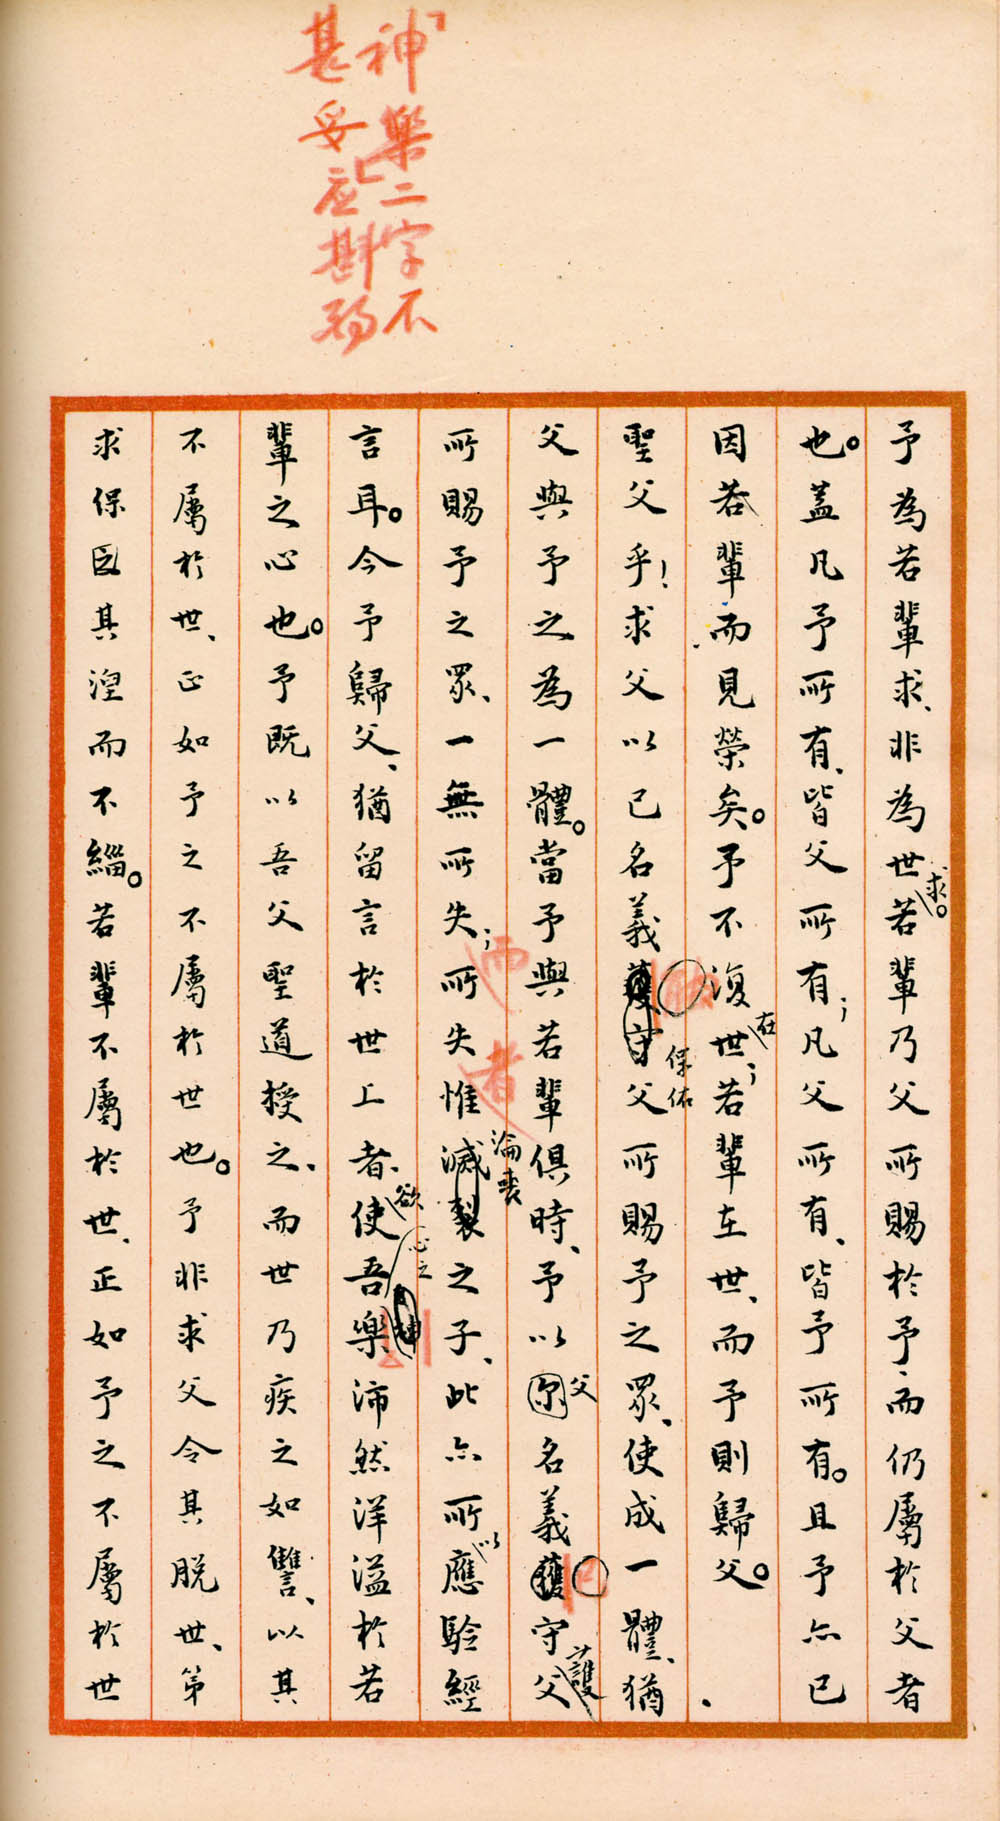 「神樂」二字不
甚妥应斟酌
予為若輩求、非為世求。若輩乃父所賜於予、而仍屬於父者
也。蓋凡予所有、皆父所有；凡父所有、皆予所有。且予亦已
因若輩而見榮矣。予不復在世；若輩在世、而予則歸父。
聖父乎！求父以己名義保佑父所賜予之眾、使成一體、猶
父與予之為一體。當予與若輩俱時、予以父名義守護父
所賜予之眾、一無所失；所失惟淪喪之子、此亦所以應驗經
言耳。今予歸父、猶留言於世上者、欲使吾心之樂沛然洋溢於若
輩之心也。予既以吾父聖道授之、而世乃疾之如讐、以其
不屬於世、正如予之不屬於世也。予非求父令其脫世、第
求保其涅而不緇。若輩不屬於世、正如予之不屬於世
而
者